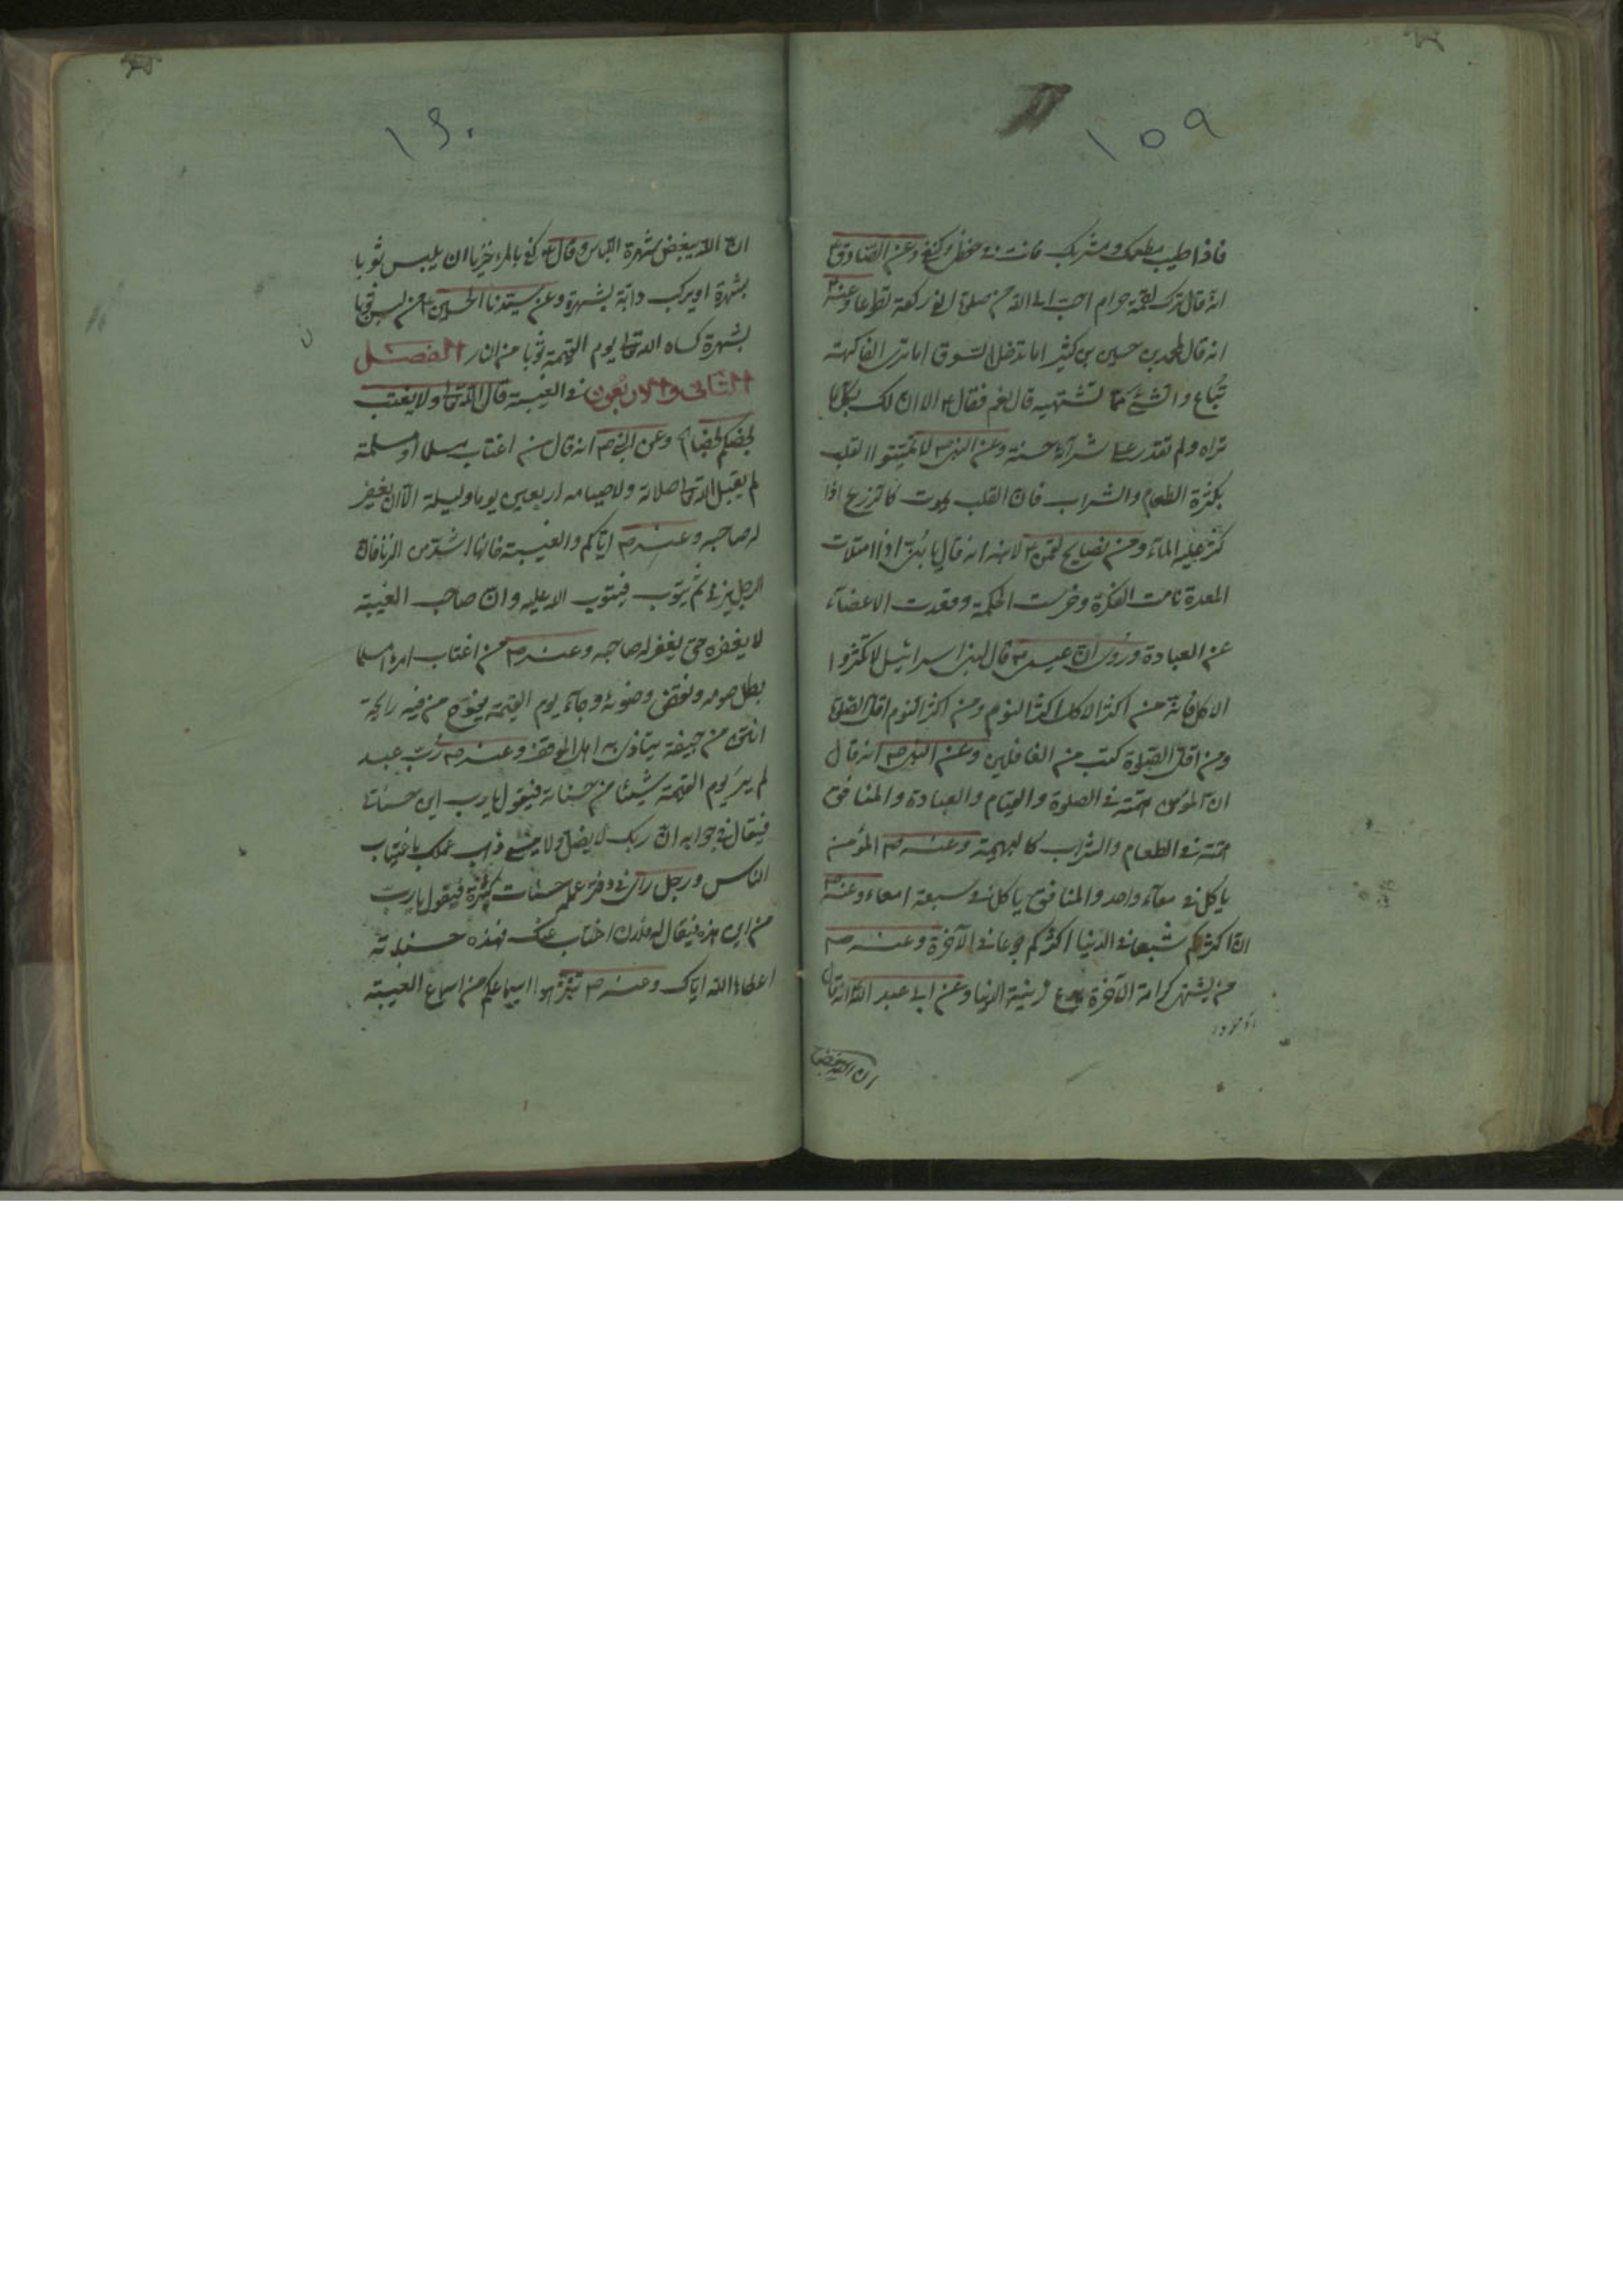 ١٥٩
فاذا طيب مطعمك ومشربك فانت في حفظى وكنفى وعن الصادق ع
انه قال ترك لقمة حرام احب الى الله من صلوة الفى ركعة تطوعا وعنه ع
انه قال لمحمد بن حسين بن كثير اما تدخل السوق اما ترى الفاكهة
تباع والشئ مما تشتهيه قال نعم فقال ع الا ان لك بكل ما
تراه ولم تقدر على شرائه حسنة وعن النبى ص لا تميتوا القلب
بكثرة الطعام والشراب فان القلب يموت كالزرع اذا
كثر عليه الماء ومن نصايح لقمن ع لابنه انه قال يا بنى اذا امتلات
المعدة نامت الفكرة وخرست الحكمة وقعدت الاعضاء
عن العبادة وروى ان عيسى ع قال لبنى اسرائيل لا تكثروا
الاكل فانه من اكثر الاكل اكثر النوم ومن اكثر النوم اقل الصلوة
ومن اقل الصلوة كتب من الغافلين وعن النبى ص انه قال
ان المؤمن همته في الصلوة والصيام والعبادة والمنافق
همته في الطعام والشراب كالبهيمة وعنه ص المؤمن
ياكل في معاء واحد والمنافق ياكل في سبعة امعاء وعنه ص
ان اكثركم شبعا في الدنيا اكثركم جوعا في الآخرة وعنه ص
من يشتهى كرامة الآخرة يدع زينة الدنيا وعن ابى عبد الله انه قال
ان الله يبغض
١٦٠
ان الله يبغض شهرة اللباس وقال ع كفى بالمرء خزيا ان يلبس ثوبا
بشهرة او يركب دابة بشهرة وعن سيدنا الحسين ع من لبس ثوبا
بشهرة كساه الله تعالى يوم القيمة ثوبا من النار الفصل
الثانى والاربعون في الغيبة قال الله تعالى ولا يغتب
بعضكم بعضا وعن النبى ص انه قال من اغتاب مسلما او مسلمة
لم يقبل الله تعالى صلاته ولا صيامه اربعين يوما وليلة الا ان يغفر
له صاحبه وعنه ص اياكم والغيبة فانها اشد من الزنا فان
الرجل يزنى ثم يتوب فيتوب الله عليه وان صاحب الغيبة
لا يغفره حتى يغفر له صاحبه وعنه ص من اغتاب امرءا مسلما
بطل صومه ونقض وضوئه وجاء يوم القيمة يفوح من فيه رايحة
انتن من جيفة يتاذى به اهل الموقف وعنه ص رب عبد
لم ير يوم القيمة شيئا من حسناته فيقول يا رب اين حسناتى
فيقال في جوابه ان ربك لا يضل ولا ينسى ذهب عملك باغتياب
الناس ورجل راى في دفتر عمله حسنات كثيرة فيقول يا رب
من اين هذه فيقال له فلان اغتاب عنك فهذه حسناته
اعطاه الله اياك وعنه ص تنزهوا اسماعكم من اسماع الغيبة